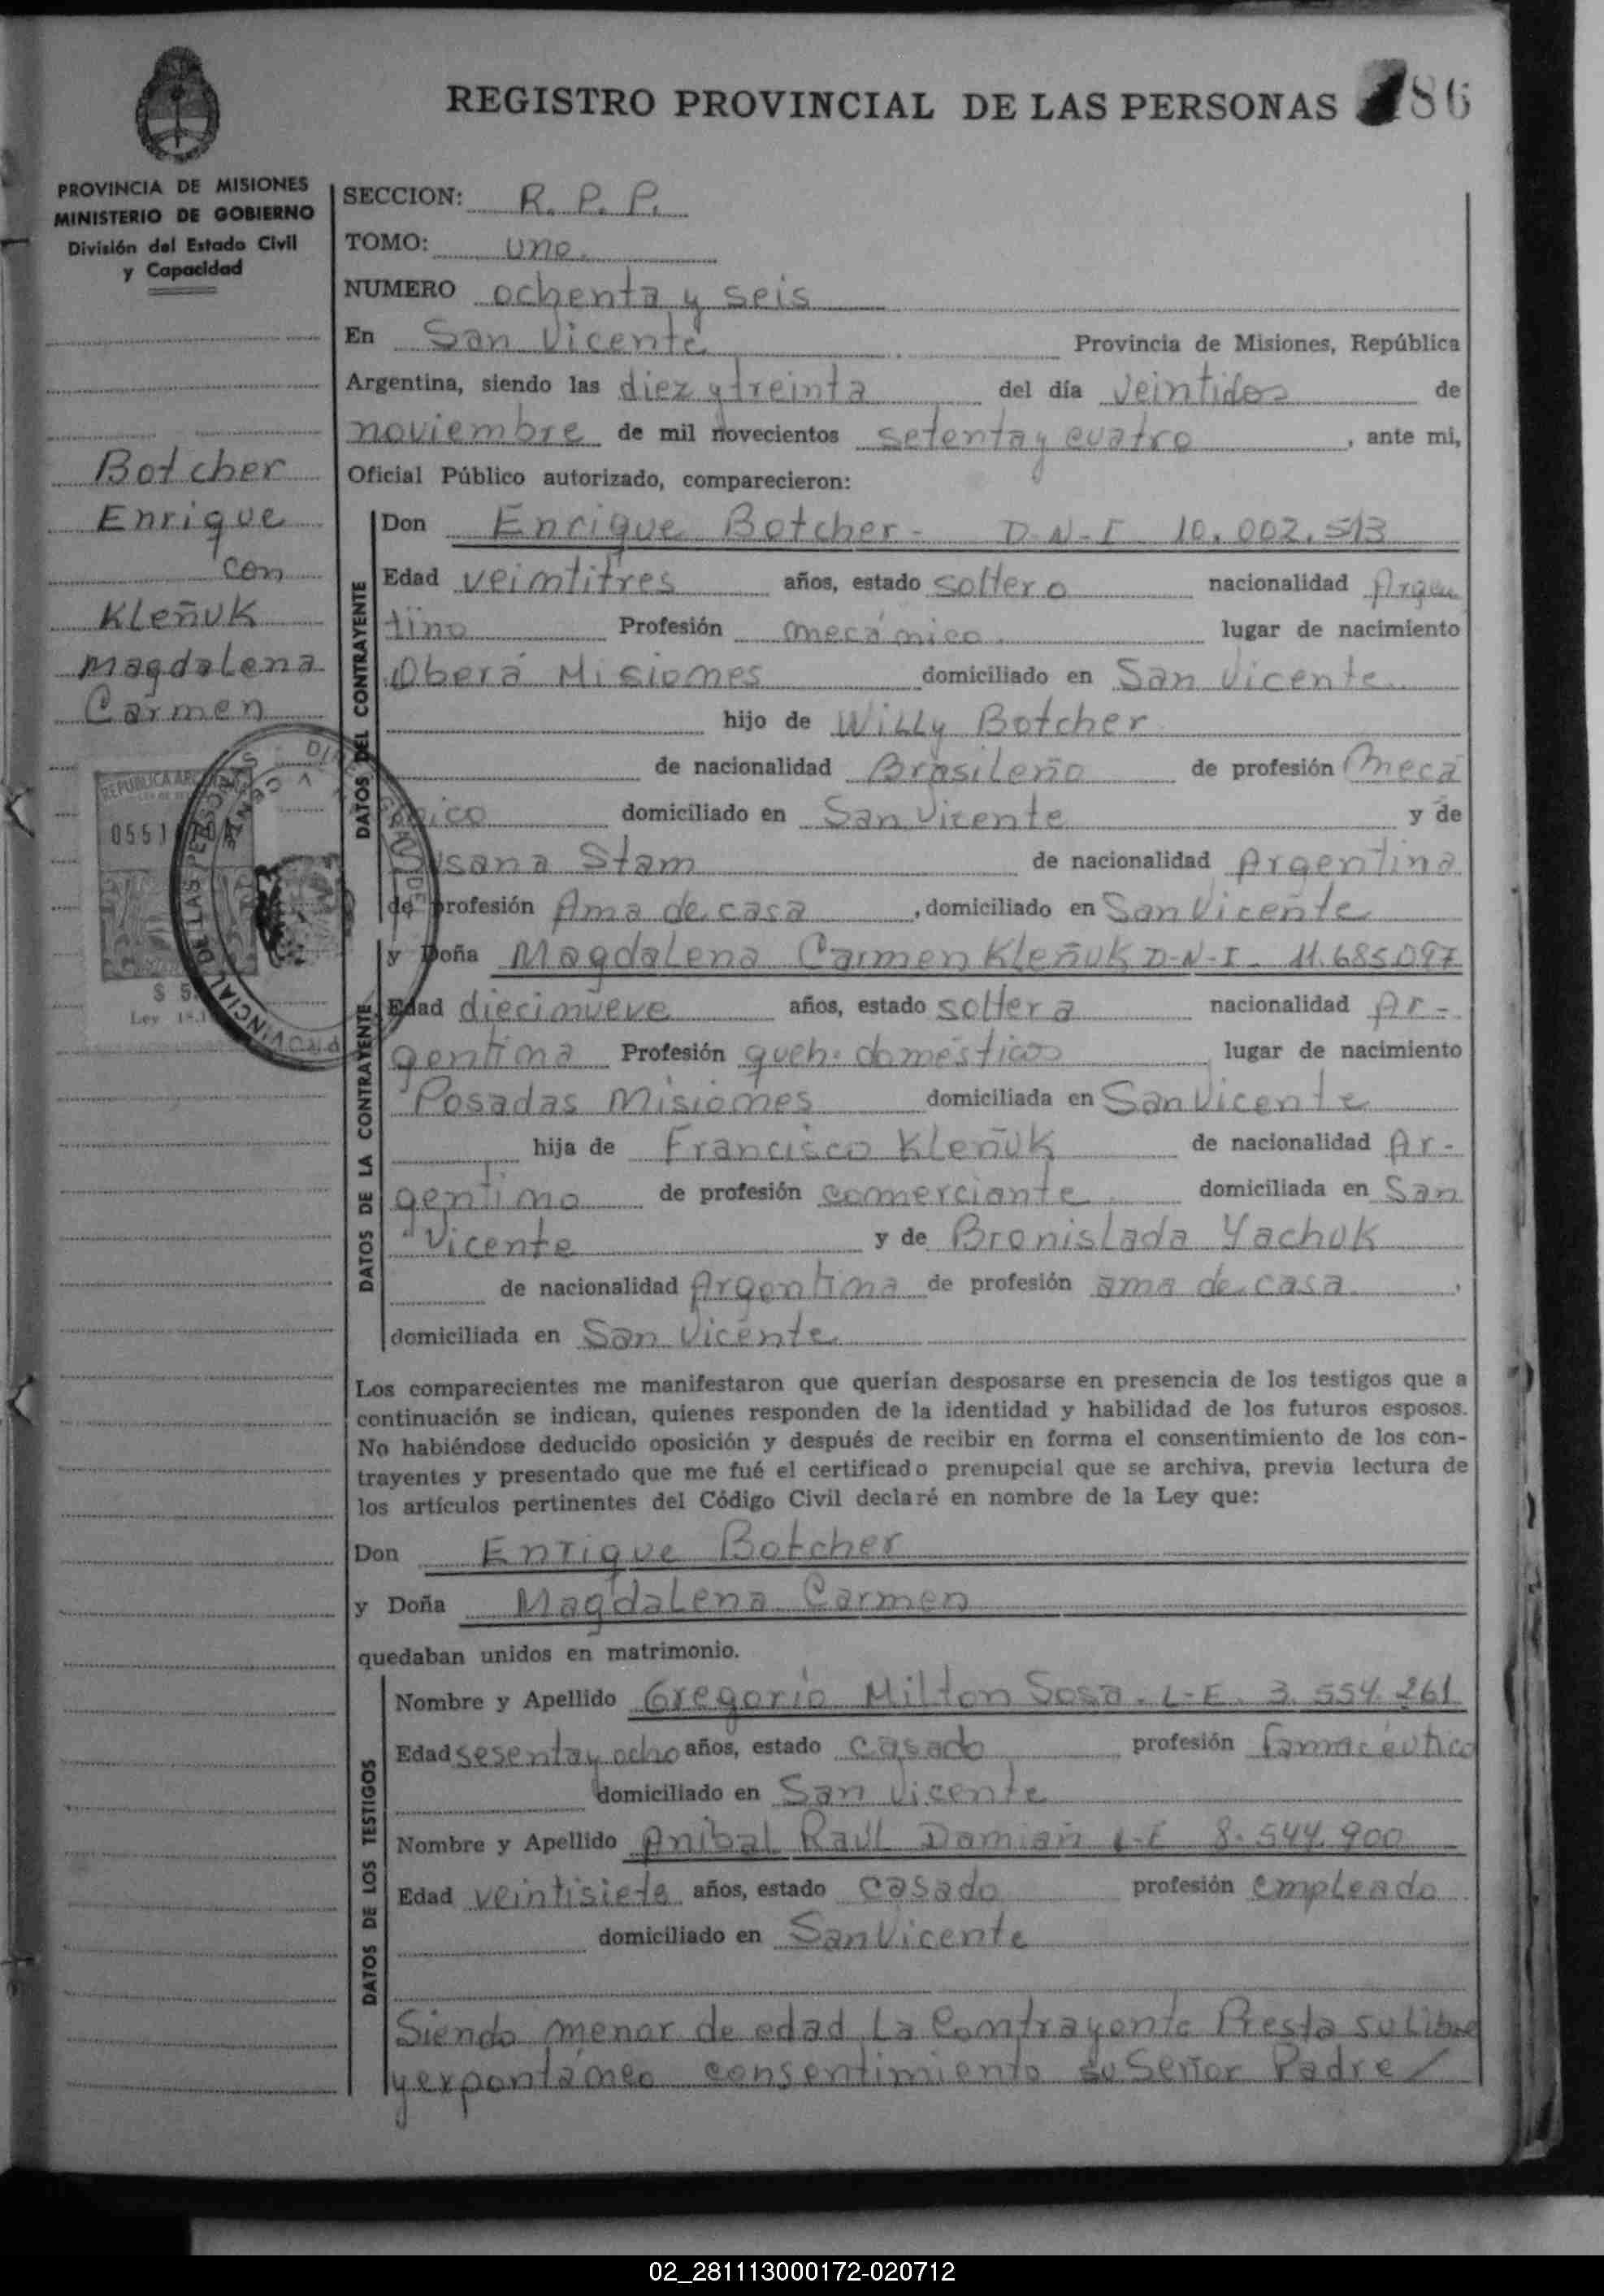 REGISTRO PROVINCIAL DE LAS PERSONAS 86
PROVINCIA DE MISIONES
MINISTERIO DE GOBIERNO
División del Estado Civil
y Capacidad
Botcher
Enrique
con
Kleñuk
Magdalena
Carmen
REPUBLICA
0551
$ 5
Ley
PROVINCIAL DE LAS PERSONAS
SECCION: R. P. P.
TOMO: uno.
NUMERO ochenta y seis
En San Vicente Provincia de Misiones, República
Argentina, siendo las diez y treinta del día veintidos de
noviembre de mil novecientos setenta y cuatro, ante mi,
Oficial Público autorizado, comparecieron:
DATOS DEL CONTRAYENTE
Don Enrique Botcher - D-N-I 10.002.513
Edad veintitres años, estado soltero nacionalidad Argen
tino Profesión mecánico lugar de nacimiento
Oberá Misiones domiciliado en San Vicente
hijo de Willy Botcher
de nacionalidad Brasileño de profesión Mecá
nico domiciliado en San Vicente y de
Susana Stam de nacionalidad Argentina
de profesión Ama de casa, domiciliado en San Vicente
DATOS DE LA CONTRAYENTE
y Doña Magdalena Carmen Kleñuk D-N-I- 11.685.097
Edad diecinueve años, estado soltera nacionalidad Ar-
gentina Profesión queh. domésticos lugar de nacimiento
Posadas Misiones domiciliada en San Vicente
hija de Francisco Kleñuk de nacionalidad Ar-
gentino de profesión comerciante domiciliada en San
Vicente y de Bronislada Yachuk
de nacionalidad Argentina de profesión ama de casa,
domiciliada en San Vicente
Los comparecientes me manifestaron que querían desposarse en presencia de los testigos que a
continuación se indican, quienes responden de la identidad y habilidad de los futuros esposos.
No habiéndose deducido oposición y después de recibir en forma el consentimiento de los con-
trayentes y presentado que me fué el certificado prenupcial que se archiva, previa lectura de
los artículos pertinentes del Código Civil declaré en nombre de la Ley que:
Don Enrique Botcher
y Doña Magdalena Carmen
quedaban unidos en matrimonio.
DATOS DE LOS TESTIGOS
Nombre y Apellido Gregorio Milton Sosa. L-E. 3.554.261
Edad sesenta y ocho años, estado casado profesión farmacéutico
domiciliado en San Vicente
Nombre y Apellido Anibal Raúl Damián L-E 8.544.900
Edad veintisiete años, estado casado profesión empleado
domiciliado en San Vicente
Siendo menor de edad la contrayente Presta su libre
y expontáneo consentimiento su Señor Padre/
02_281113000172-020712